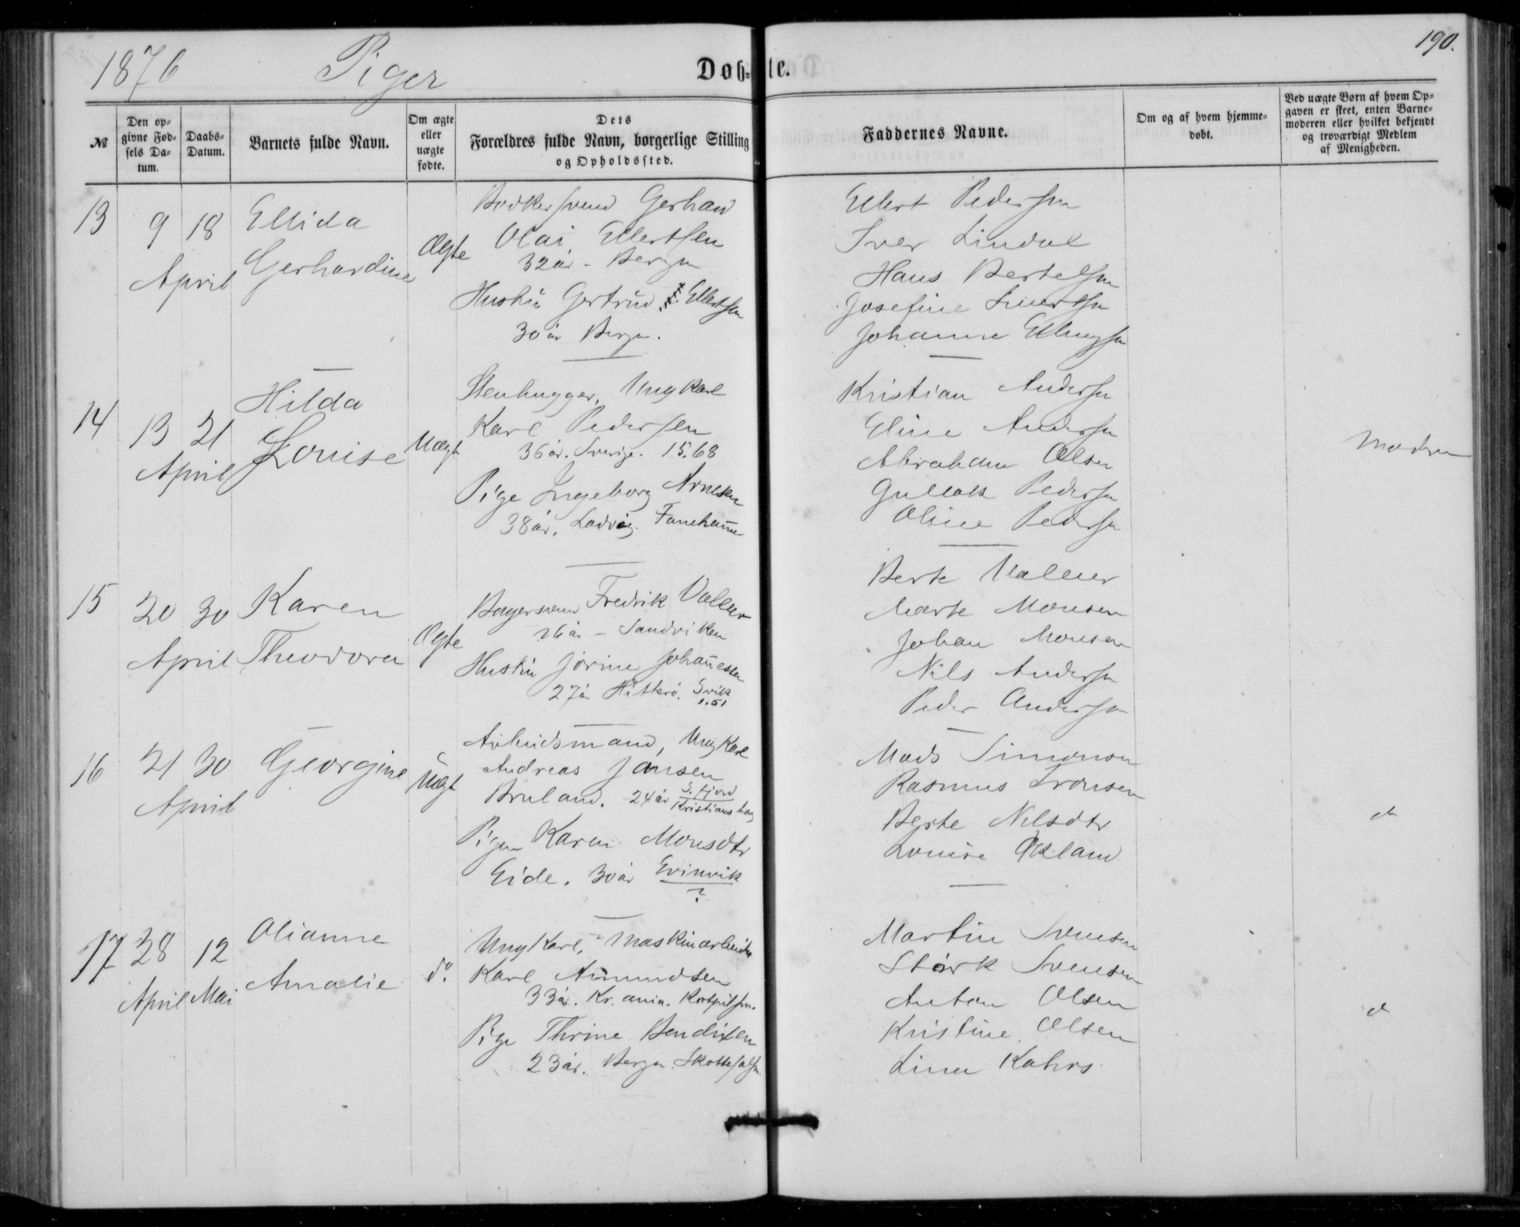 1876 Piger Døb-te. 190.
№
Den op-
givne Fød-
sels Da-
tum.
Daabs-
Datum.
Barnets fulde Navn.
Om ægte
eller
uægte
fødte.
Dets
Forældres fulde Navn, borgerlige Stilling
og Opholdssted.
Faddernes Navne.
Om og af hvem hjemme-
døbt.
Ved uægte Børn af hvem Op-
gaven er skeet, enten Barne-
moderen eller hvilket bekjendt
og troværdigt Medlem
af Menigheden.
13 9 18 Ellida
April Gerhardine
Ægte
Bødkersvend Gerhard
Olai Ellertsen
32 år - Bergen
Hustru Gertrud Ellertsen
30 år Bergen.
Ellert Pedersen
Iver Lindal
Hans Bertelsen
Josefine
Johanne
14 13 21 Hilda
April Louise
Uægte
Stenhugger, Ungkarl
Karl Pedersen
36 år. Sverige. 15.68
Pige Ingeborg Arnesen
38 år. Ladvig.
Kristian Andersen
Eline Andersen
Abraham Olsen
Gullak Pedersen
Oline Pedersen
Modren
15 20 30 Karen
April Theodora
Ægte
Bagersvend Fredrik Valeur
26 år - Sandviken
Hustru Jorine Johannesen
27 år Hitterø. Svik
1.51
Berte Valeur
Marte Monsen
Johan Monsen
Nils Andersen
Peder Andersen
16 21 30 Georgine
April
Uægt
Arbeidsmand, Ungkarl
Andreas Jansen
Bruland. 24 år S. fjord
Kristians
Pigen Karen Monsdtr
Eide. 30 år Evinvik
?
Mads Simonsen
Rasmus
Berte Nilsdtr
Louise Økland
d
17 28 12 Olianne
April Mai Amalie
do.
Ungkarl, Maskinarbeider
Karl Amundsen
33 år. Kr.ania.
Pige Thrine Bendixen
23 år. Bergen.
Martin Svensen
Størk Svensen
Anton Olsen
Kristine Olsen
Lina Kahrs
d